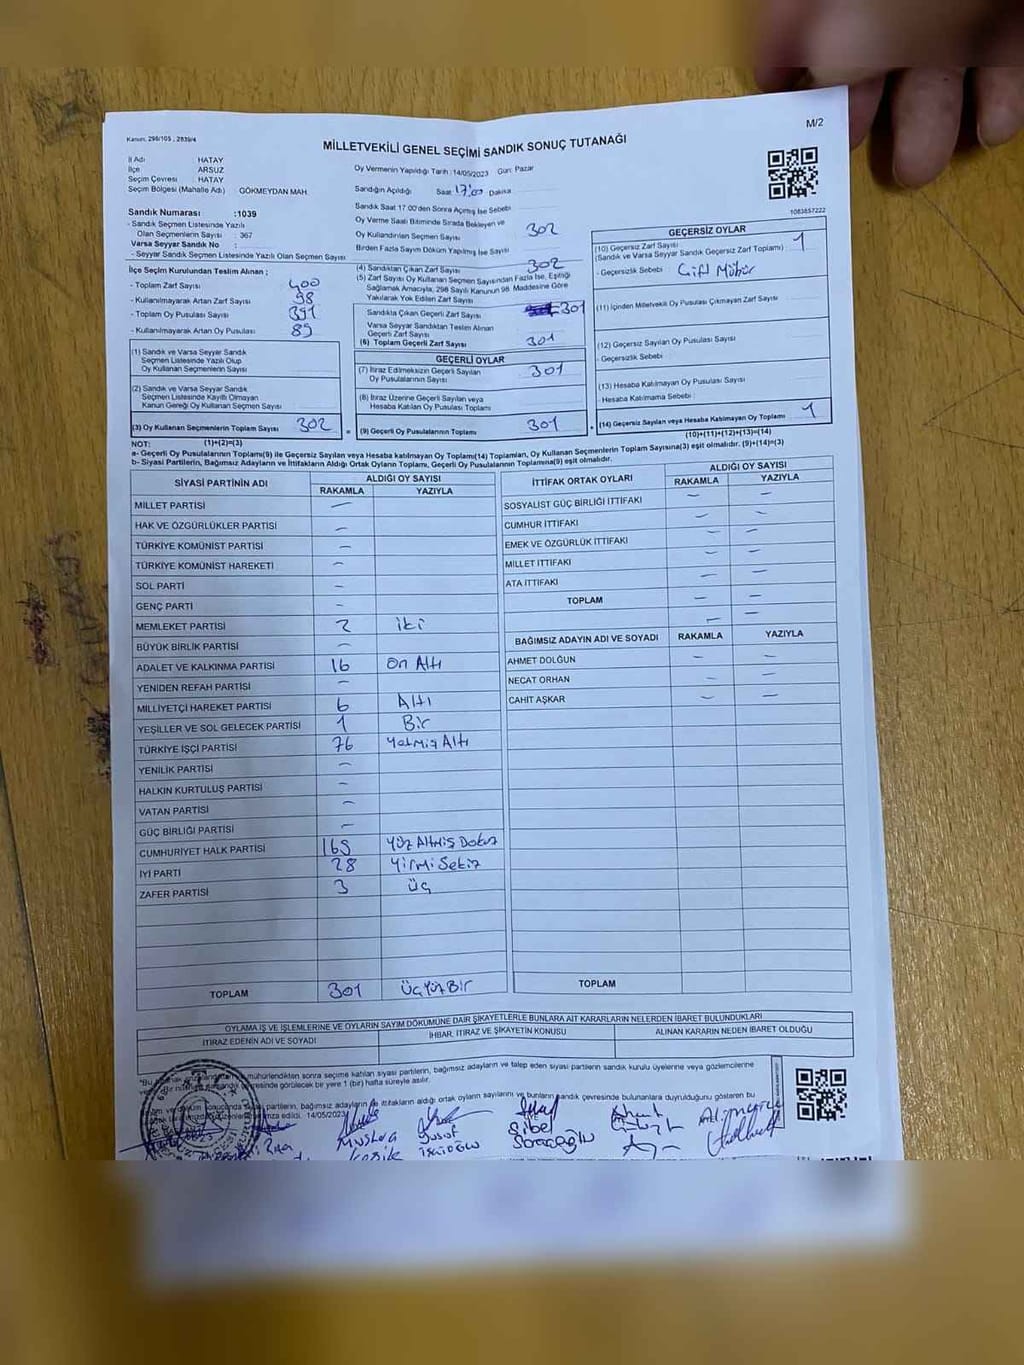 Kanun, 298/105 , 2839/4
M/2
MİLLETVEKİLİ GENEL SEÇİMİ SANDIK SONUÇ TUTANAĞI
İl Adı HATAY
İlçe ARSUZ
Seçim Çevresi HATAY
Seçim Bölgesi (Mahalle Adı) GÖKMEYDAN MAH.
Sandık Numarası :1039
- Sandık Seçmen Listesinde Yazılı
Olan Seçmenlerin Sayısı : 367
Varsa Seyyar Sandık No :
- Seyyar Sandık Seçmen Listesinde Yazılı Olan Seçmen Sayısı
İlçe Seçim Kurulundan Teslim Alınan ;
- Toplam Zarf Sayısı 400
- Kullanılmayarak Artan Zarf Sayısı 98
- Toplam Oy Pusulası Sayısı 391
- Kullanılmayarak Artan Oy Pusulası 89
(1) Sandık ve Varsa Seyyar Sandık
Seçmen Listesinde Yazılı Olup
Oy Kullanan Seçmenlerin Sayısı
(2) Sandık ve Varsa Seyyar Sandık
Seçmen Listesinde Kayıtlı Olmayan
Kanun Gereği Oy Kullanan Seçmen Sayısı
(3) Oy Kullanan Seçmenlerin Toplam Sayısı 302
Oy Vermenin Yapıldığı Tarih :14/05/2023 Gün: Pazar
Sandığın Açıldığı Saat 17:00 Dakika
Sandık Saat 17.00'den Sonra Açılmış İse Sebebi
Oy Verme Saati Bitiminde Sırada Bekleyen ve
Oy Kullandırılan Seçmen Sayısı 302
Birden Fazla Sayım Döküm Yapılmış İse Sayısı
(4) Sandıktan Çıkan Zarf Sayısı 302
(5) Zarf Sayısı Oy Kullanan Seçmen Sayısından Fazla İse, Eşitliği
Sağlamak Amacıyla, 298 Sayılı Kanunun 98. Maddesine Göre
Yakılarak Yok Edilen Zarf Sayısı
Sandıkta Çıkan Geçerli Zarf Sayısı 301
Varsa Seyyar Sandıktan Teslim Alınan
Geçerli Zarf Sayısı
(6) Toplam Geçerli Zarf Sayısı 301
GEÇERLİ OYLAR
(7) İtiraz Edilmeksizin Geçerli Sayılan
Oy Pusulalarının Sayısı 301
(8) İtiraz Üzerine Geçerli Sayılan veya
Hesaba Katılan Oy Pusulası Toplamı
(9) Geçerli Oy Pusulalarının Toplamı 301
1083857222
GEÇERSİZ OYLAR
(10) Geçersiz Zarf Sayısı 1
(Sandık ve Varsa Seyyar Sandık Geçersiz Zarf Toplamı)
- Geçersizlik Sebebi Çift Mühür
(11) İçinden Milletvekili Oy Pusulası Çıkmayan Zarf Sayısı
(12) Geçersiz Sayılan Oy Pusulası Sayısı
- Geçersizlik Sebebi
(13) Hesaba Katılmayan Oy Pusulası Sayısı
- Hesaba Katılmama Sebebi :
(14) Geçersiz Sayılan veya Hesaba Katılmayan Oy Toplamı 1
NOT: (1)+(2)=(3)
(10)+(11)+(12)+(13)=(14)
a- Geçerli Oy Pusulalarının Toplamı(9) ile Geçersiz Sayılan veya Hesaba katılmayan Oy Toplamı(14) Toplamları, Oy Kullanan Seçmenlerin Toplam Sayısına(3) eşit olmalıdır. (9)+(14)=(3)
b- Siyasi Partilerin, Bağımsız Adayların ve İttifakların Aldığı Ortak Oyların Toplamı, Geçerli Oy Pusulalarının Toplamına(9) eşit olmalıdır.
SİYASİ PARTİNİN ADI ALDIĞI OY SAYISI
RAKAMLA YAZIYLA
MİLLET PARTİSİ –
HAK VE ÖZGÜRLÜKLER PARTİSİ –
TÜRKİYE KOMÜNİST PARTİSİ –
TÜRKİYE KOMÜNİST HAREKETİ –
SOL PARTİ –
GENÇ PARTİ –
MEMLEKET PARTİSİ 2 iki
BÜYÜK BİRLİK PARTİSİ –
ADALET VE KALKINMA PARTİSİ 16 on Altı
YENİDEN REFAH PARTİSİ –
MİLLİYETÇİ HAREKET PARTİSİ 6 Altı
YEŞİLLER VE SOL GELECEK PARTİSİ 1 Bir
TÜRKİYE İŞÇİ PARTİSİ 76 Yetmiş Altı
YENİLİK PARTİSİ –
HALKIN KURTULUŞ PARTİSİ –
VATAN PARTİSİ –
GÜÇ BİRLİĞİ PARTİSİ –
CUMHURİYET HALK PARTİSİ 169 Yüz Altmış Dokuz
İYİ PARTİ 28 Yirmi Sekiz
ZAFER PARTİSİ 3 Üç
TOPLAM 301 Üç Yüz Bir
İTTİFAK ORTAK OYLARI ALDIĞI OY SAYISI
RAKAMLA YAZIYLA
SOSYALİST GÜÇ BİRLİĞİ İTTİFAKI – –
CUMHUR İTTİFAKI – –
EMEK VE ÖZGÜRLÜK İTTİFAKI – –
MİLLET İTTİFAKI – –
ATA İTTİFAKI – –
TOPLAM – –
BAĞIMSIZ ADAYIN ADI VE SOYADI RAKAMLA YAZIYLA
AHMET DOLĞUN – –
NECAT ORHAN – –
CAHİT AŞKAR – –
TOPLAM
OYLAMA İŞ VE İŞLEMLERİNE VE OYLARIN SAYIM DÖKÜMÜNE DAİR ŞİKAYETLERLE BUNLARA AİT KARARLARIN NELERDEN İBARET BULUNDUKLARI
İTİRAZ EDENİN ADI VE SOYADI İHBAR, İTİRAZ VE ŞİKAYETİN KONUSU ALINAN KARARIN NEDEN İBARET OLDUĞU
mühürlendikten sonra seçime katılan siyasi partilerin, bağımsız adayların ve talep eden siyasi partilerin sandık kurulu üyelerine veya gözlemcilerine
çevresinde görülecek bir yere 1 (bir) hafta süreyle asılır.
partilerin, bağımsız adayların ile ittifakların aldığı ortak oyların sayılarını ve bunların sandık çevresinde bulunanlara duyrulduğunu gösteren bu
imza edildi. 14/05/2023
Mustafa
Yusuf
Sibel